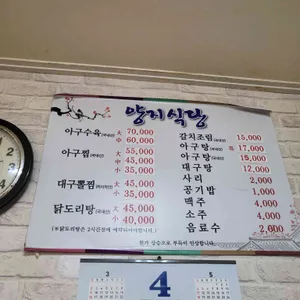 양지식당
아구수육 (국내산) 大 70,000
中 60,000
아구찜 (국내산) 大 55,000
中 45,000
小 35,000
대구뽈찜 大 45,000
小 35,000
닭도리탕 (국내산) 大 45,000
小 40,000
갈치조림 (국내산) 15,000
아구탕 (국내산) 特 17,000
아구탕 (국내산) 15,000
대구탕 12,000
사리 2,000
공기밥 1,000
맥주 4,000
소주 4,000
음료수 2,000
3
4
5